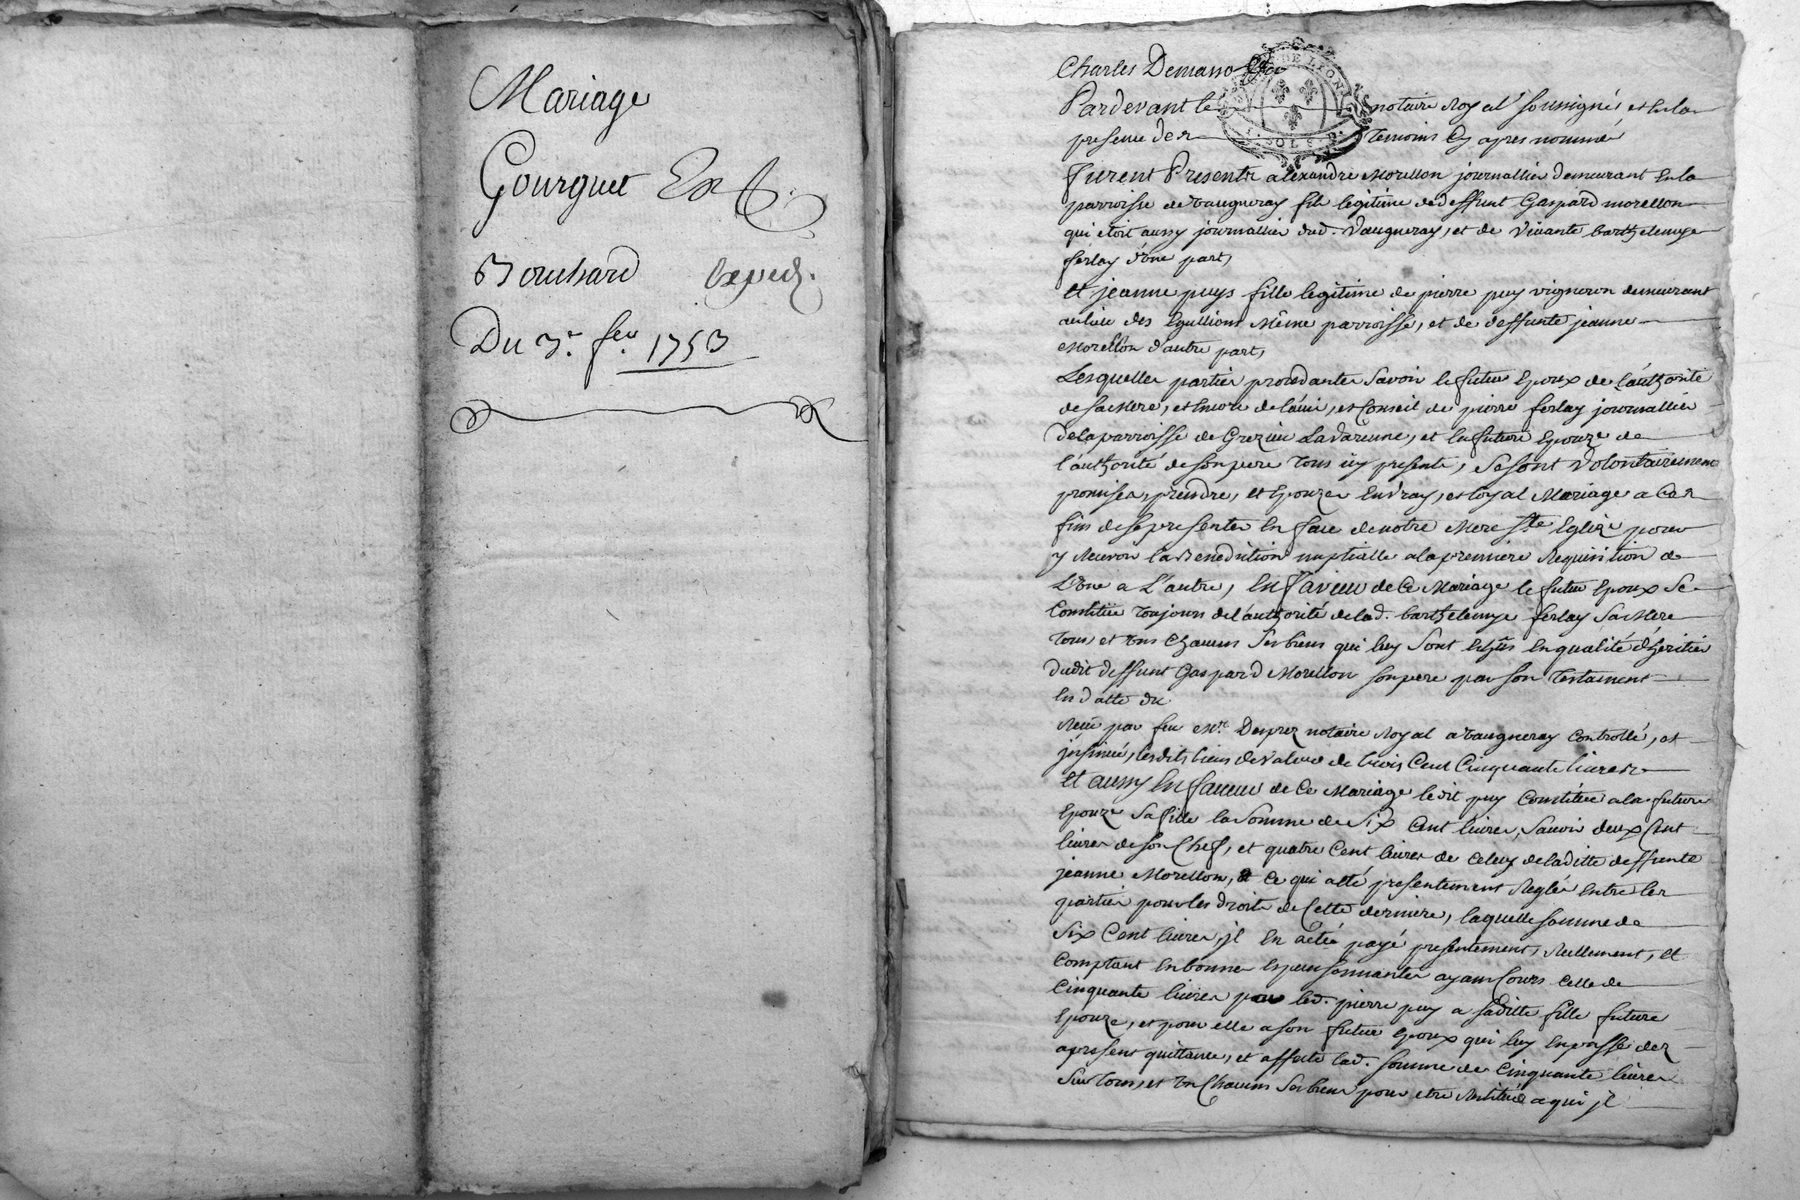 Mariage
Gourguet Ex
Bouchard Expedr.
Du 3e. fev. 1753
Charles Demano
Pardevant le notaire Royal soussigné et en la
presence des temoins cy apres nommé
Furent Presents alexandre Morellon journallier demeurant en la
parroisse de vaugneray fils legitime de deffunt Gaspard morellon
qui étoit aussy journallier dud. Vaugneray, et de vivante barthelemye
ferlay d'une part,
et jeanne puys fille legitime de pierre puy vigneron demeurant
au lieu des Même parroisse, et de deffunte jeanne
Morellon d'autre part,
Lesquelles parties procedantes Savoir le futur Epoux de l'authorité
de sa Mere, et encore de l'avis, et Conseil de pierre ferlay journallier
de la parroisse de Grezieu Lavarenne, et la future Epouze de
l'authorité de son pere tous icy presents, se sont volontairement
promis se prendre, et Epouzer en vray, et loyal Mariage a Ces
fins de se presenter en face de notre Mere Ste Eglize pour
y Recevoir la Benediction nuptialle a la premiere Requisition de
L'une a L'autre, En faveur de Ce Mariage le futur Epoux se
Constitue toujours de l'authorité de lad. barthelemye ferlay sa Mere
tous, et uns Chacuns ses biens qui luy sont Echus en qualité d'héritier
dudit deffunt Gaspard Morellon son pere par son testament
en datte du
Receu par feu Me. Desprez notaire Royal a vaugneray Controllé, et
jnsinué, lesdits biens de valeur de trois Cent Cinquante livres
et aussy en faveur de Ce Mariage ledit puy Constitue a la future
Epouze sa fille la somme de Six Cent livres, savoir deux Cent
livres de son Chef, et quatre Cent livres de Celuy de laditte deffunte
jeanne Morellon, Ce qui a été presentement Reglé entre les
parties pour les droits de Cette derniere, laquelle somme de
Six Cent livres, jl en a été payé presentement, Réellement, et
Comptant en bonnes Especes sonnantes ayant Cours Celle de
Cinquante livres par led. pierre puy a saditte fille future
Epouze, et pour elle a son futur Epoux qui luy en passe dez
apresent quittance, et affecte lad. somme de Cinquante livres
sur tous, et uns Chacuns ses biens pour etre Restituée a qui jl